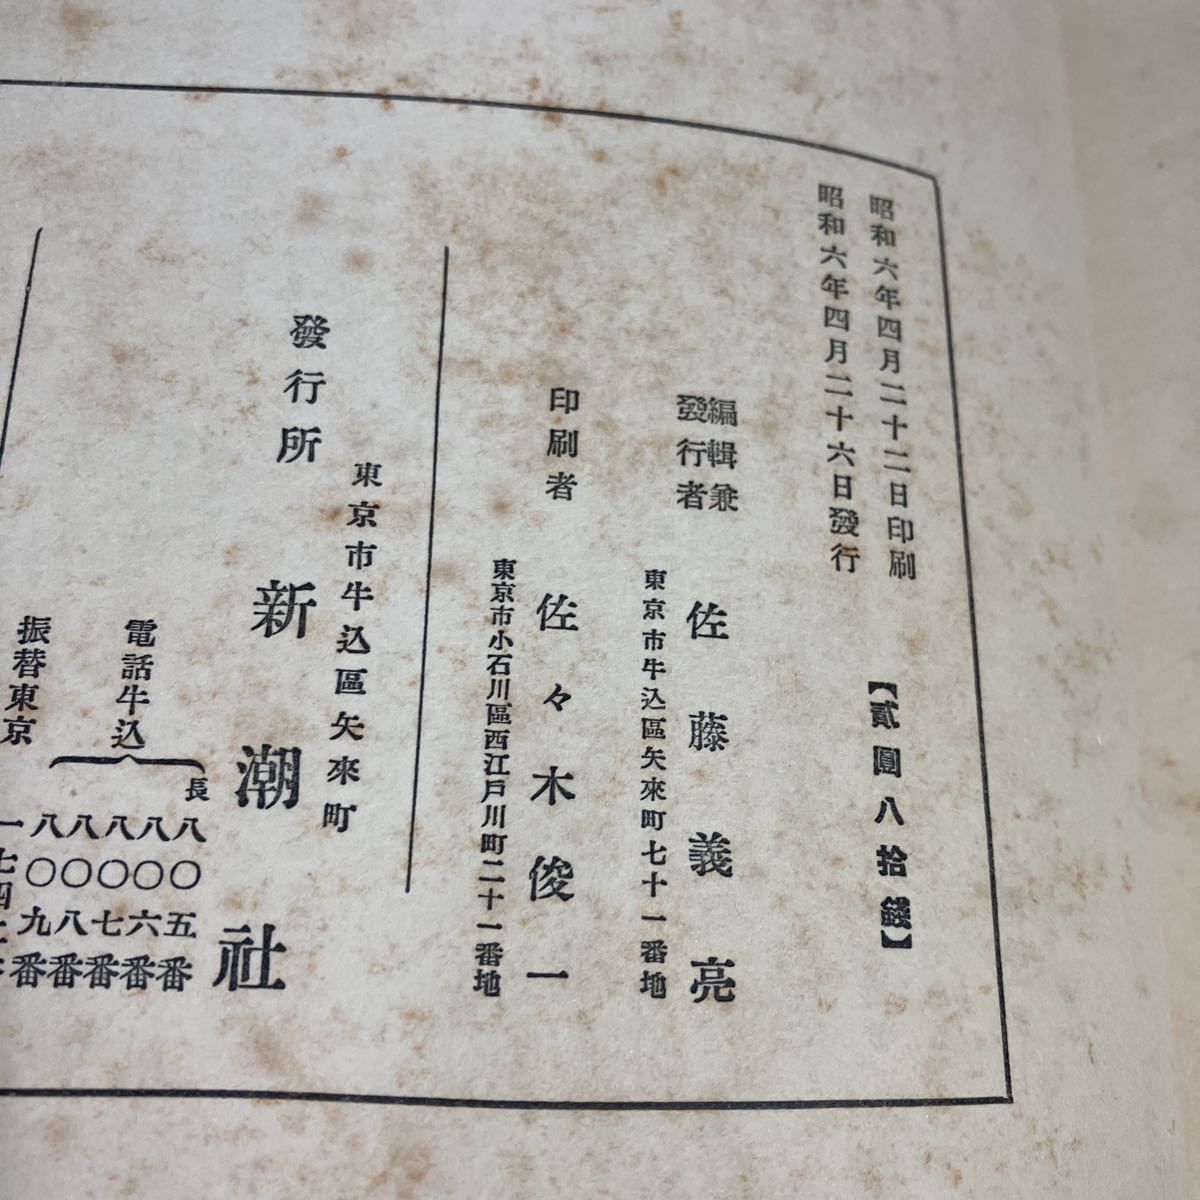 昭和六年四月二十二日印刷
昭和六年四月二十六日發行
【貳圓八拾錢】
編輯兼
發行者
佐藤義亮
東京市牛込區矢來町七十一番地
印刷者
佐々木俊一
東京市小石川區西江戸川町二十一番地
東京市牛込區矢來町
發行所
新潮社
電話牛込
長八〇五番
八〇六番
八〇七番
八〇八番
八〇九番
振替東京
一七四二番